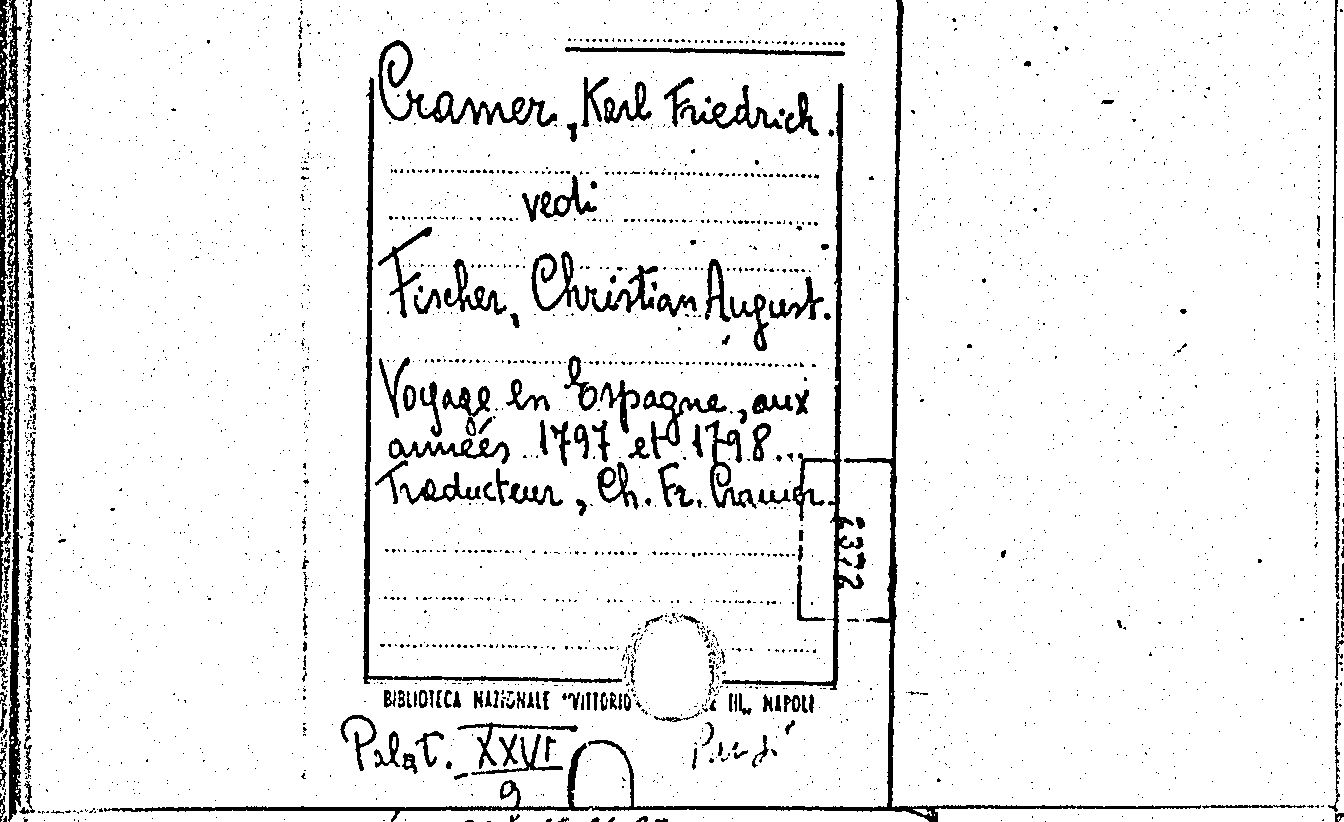 Cramer, Karl Friedrich.
vedi
Fischer, Christian August.
Voyage en Espagne, aux
années 1797 et 1798...
Traducteur, Ch. Fr. Cramer.
2372
BIBLIOTECA NAZIONALE "VITTORIO III„ NAPOLI
Palat. XXVI
9